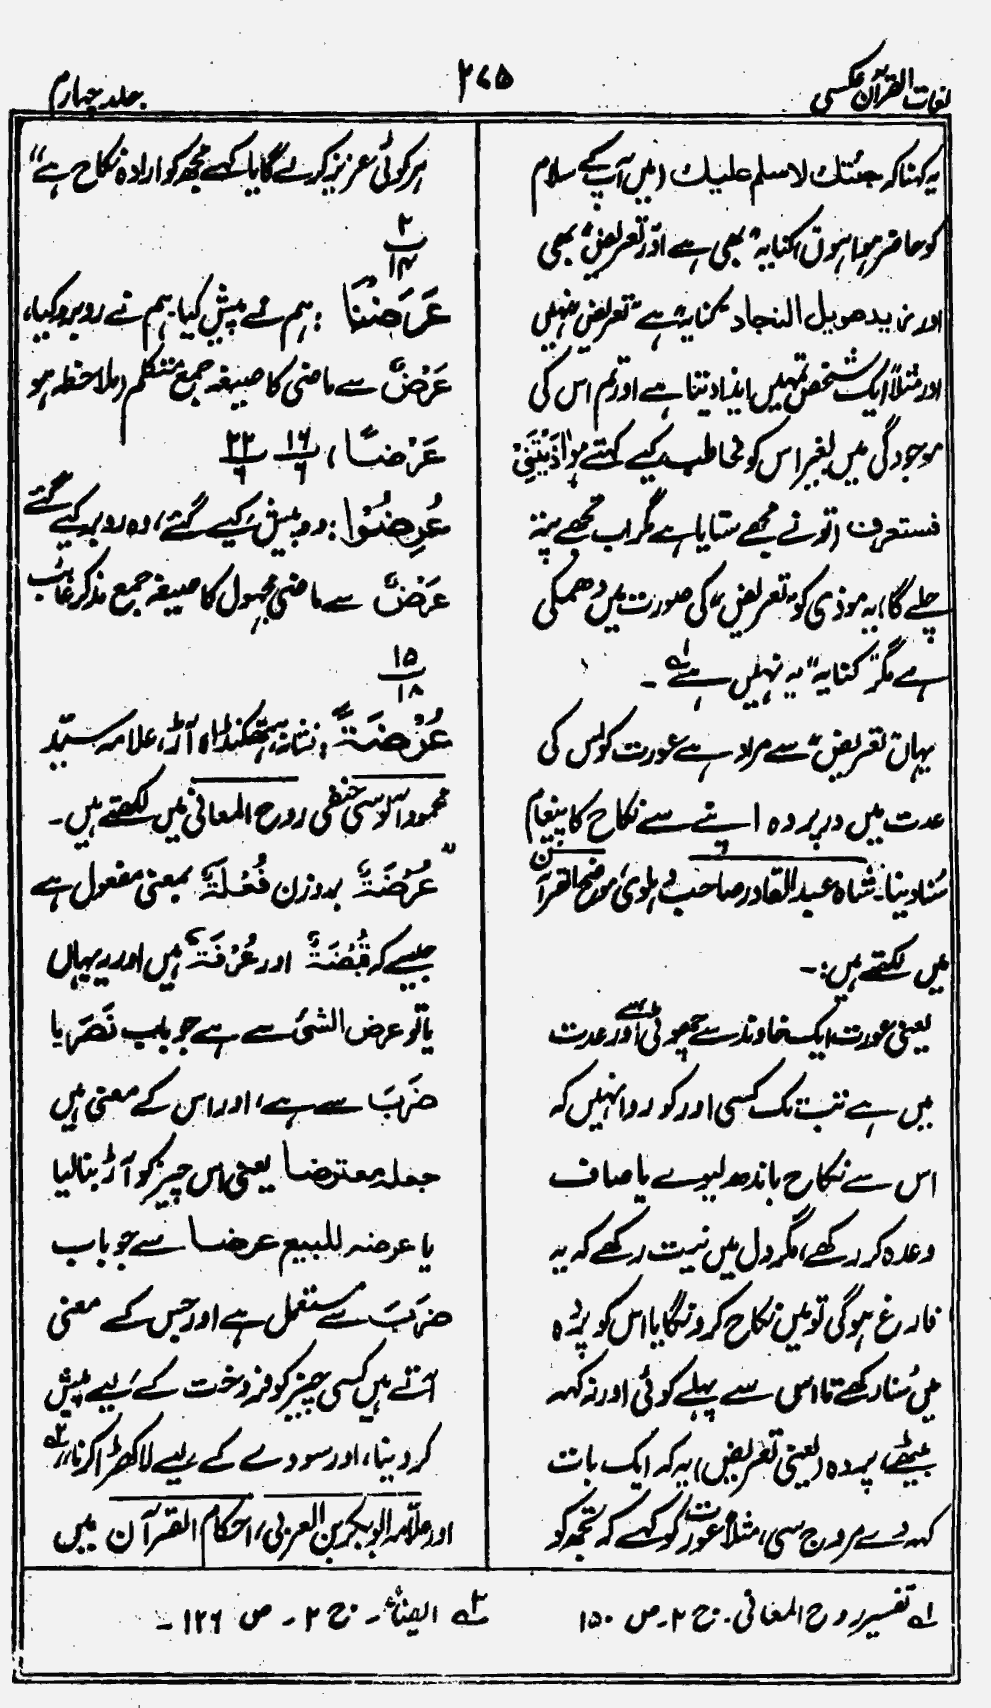 لغات القرآن عکسی
۲۷۵
جلد چہارم
یہ کہنا کہ جئتك لاسلم عليك (میں آپ کے سلام
کو حاضر ہوا ہوں) کنایہ" بھی ہے اور "تعریض" بھی
اور زيد طويل النجاد "کنایہ" ہے "تعریض" نہیں
اور مثلاً ایک شخص تمہیں ایذا دیتا ہے اور تم اس کی
موجودگی میں بغیر اس کو مخاطب کیے کہتے ہو اٰذَيْتَنِيْ
فستعرف (تو نے مجھے ستایا ہے مگر اب تجھے پتہ
چلے گا) یہ موذی کو "تعریض" کی صورت میں دھمکی
ہے مگر "کنایہ" یہ نہیں ہے لہ۔
یہاں تعریض" سے مراد ہے عورت کو اس کی
عدت میں درپردہ اپنے سے نکاح کا پیغام
سُنا دینا۔ شاہ عبدالقادر صاحب دہلویؒ موضح القرآن
میں لکھتے ہیں:۔
یعنی عورت ایک خاوند سے چھوٹی ہے اور عدت
میں ہے تب تک کسی اور کو روا نہیں کہ
اس سے نکاح باندھ لیوے یا صاف
وعدہ کر رکھے، مگر دل میں نیت رکھے کہ یہ
فارغ ہو گی تو میں نکاح کرونگا یا اس کو پردہ
میں سُنا رکھے تا اس سے پہلے کوئی اور نہ کہہ
بیٹھے، پردہ (یعنی تعریض) یہ کہ ایک بات
کہہ دے مروج سی، مثلاً عورت کو کہے کہ تجھ کو
ہر کوئی عزیز کرے گا یا کہے مجھ کو ارادہ نکاح ہے"
۲
۱۴
عَرَضْنَا : ہم نے پیش کیا، ہم نے روبرو کیا،
عَرْضٌ سے ماضی کا صیغہ جمع متکلم (ملاحظہ ہو
عَرْضًا) ، ۱۶/۶ ۲۲/۶
عُرِضُوْا : وہ پیش کیے گئے، وہ روبرو کیے گئے
عَرْضٌ سے ماضی مجہول کا صیغہ جمع مذکر غائب
۱۵
۱۸
عُرْضَةً : نشانہ، ہتھکنڈا، آڑ، علامہ سیّد
محمود آلوسی حنفی روح المعانی میں لکھتے ہیں۔
"عُرْضَةٌ بروزن فُعْلَةٌ بمعنی مفعول ہے
جیسے کہ قُبْضَةٌ اور غُرْفَةٌ ہیں اور یہ یہاں
یا تو عرض الشئ سے ہے جو باب نَصَرَ یا
ضَرَبَ سے ہے، اور اس کے معنی ہیں
جعله معترضا یعنی اس چیز کو آڑ بنا لیا
یا عرضه للبيع عرضا سے جو باب
ضَرَبَ سے مستعمل ہے اور جس کے معنی
آتے ہیں کسی چیز کو فروخت کے لیے پیش
کر دینا، اور سودے کے لیے لا کھڑا کرنا، ۲ہ
اور علامہ ابوبکر بن العربی، احکام القرآن میں
۱ہ تفسیر روح المعانی۔ ج ۲۔ ص ۱۵۰
۲ہ ایضاً۔ ج ۲۔ ص ۱۲۶۔